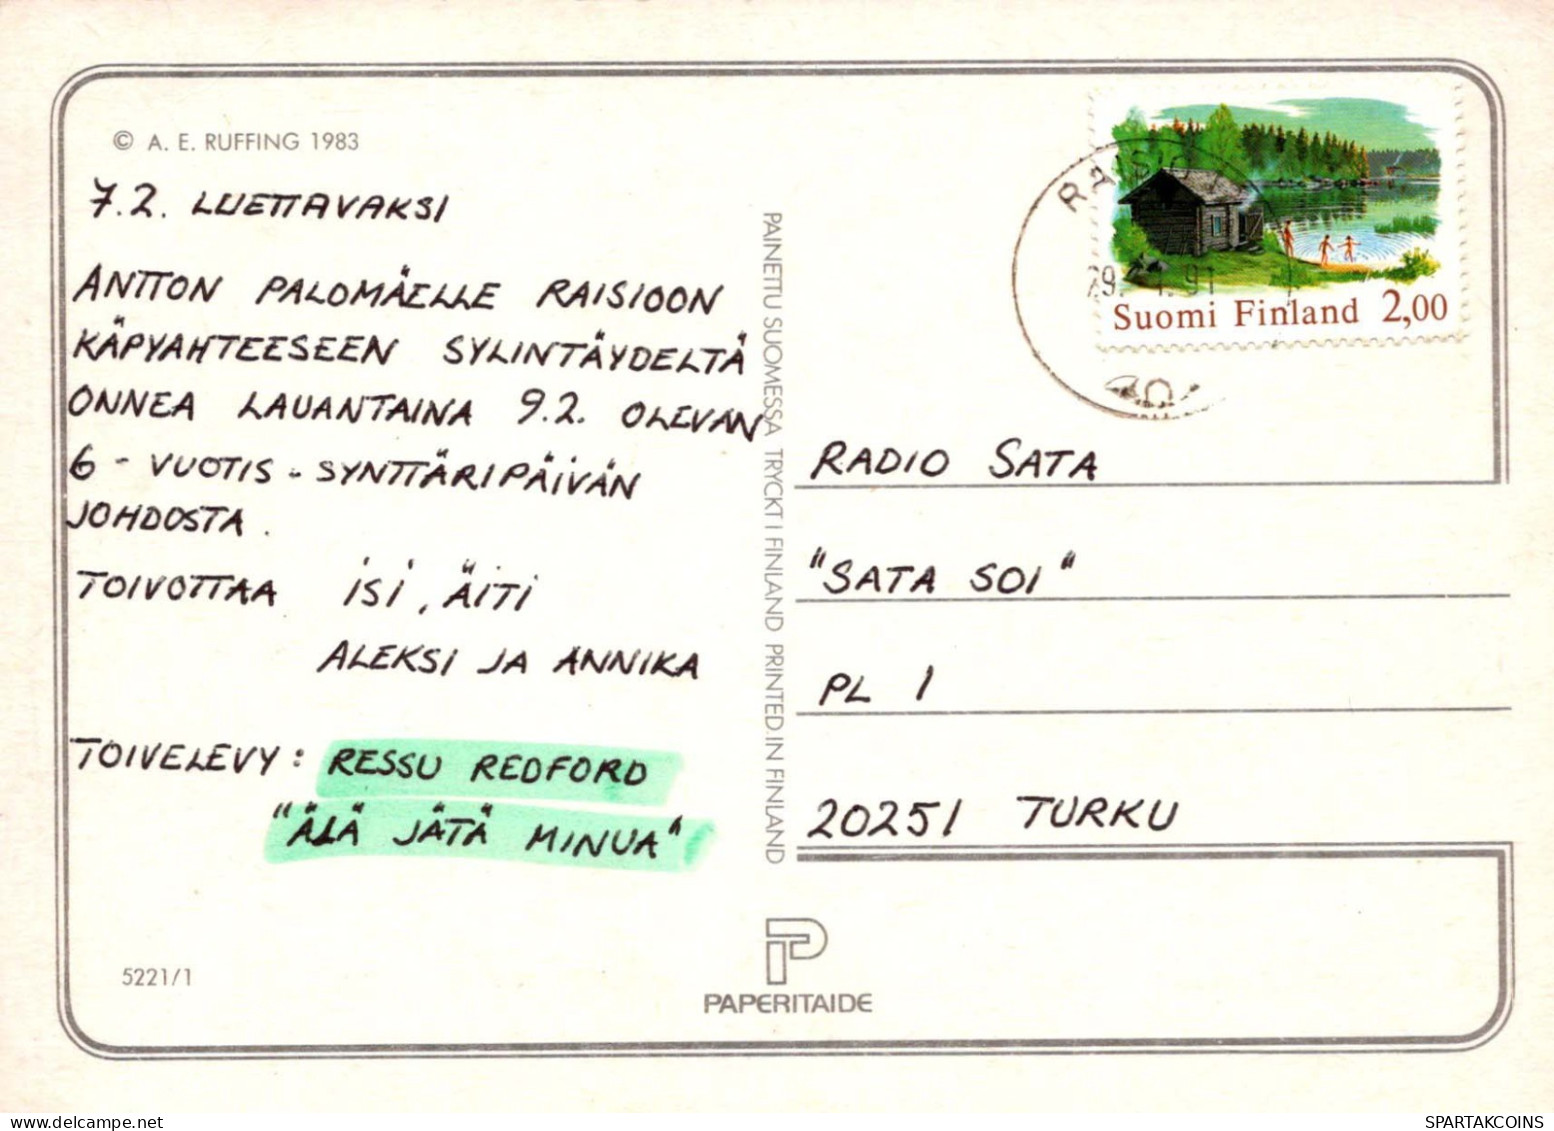 © A. E. RUFFING 1983
7.2. LUETTAVAKSI
ANTTON PALOMÄELLE RAISIOON
KÄPYAHTEESEEN SYLINTÄYDELTÄ
ONNEA LAUANTAINA 9.2. OLEVAN
6 - VUOTIS - SYNTTÄRIPÄIVÄN
JOHDOSTA.
TOIVOTTAA ISI, ÄITI
ALEKSI JA ANNIKA
TOIVELEVY: RESSU REDFORD
"ÄLÄ JÄTÄ MINUA"
5221/1
PAINETTU SUOMESSA TRYCKT I FINLAND PRINTED IN FINLAND
PAPERITAIDE
RAISIO
29.1.91
Suomi Finland 2,00
RADIO SATA
"SATA SOI"
PL 1
20251 TURKU
SPARTAKCOINS